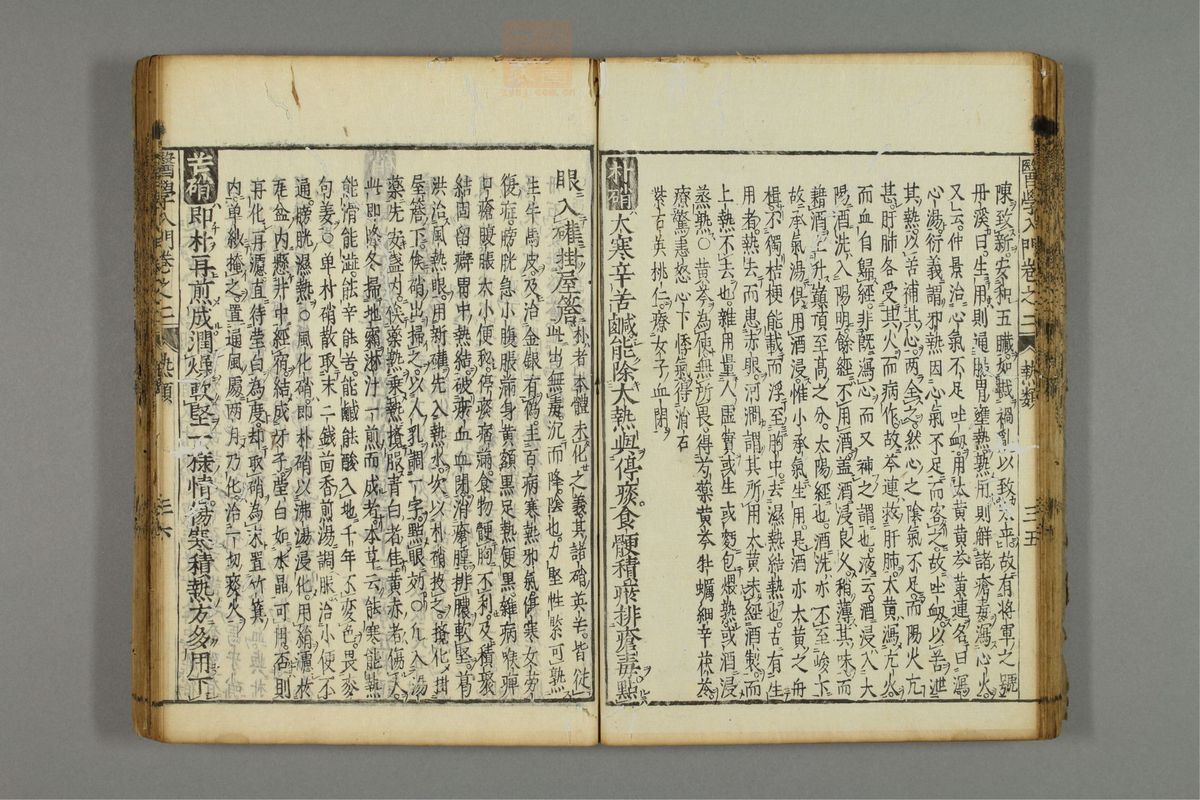 醫學入門卷之二 熱類 三五
陳致新安和五臟如戡禍亂以致太平故有將軍之號
丹溪曰生用則通腸胃壅熱熱用則解諸瘡毒瀉心火
又云仲景治心氣不足吐衄用大黃黃芩黃連名曰瀉
心湯衍義謂邪熱因心氣不足而客之故吐衄以苦泄
其熱以苦補其心兩全之然心之陰氣不足而陽火亢
甚肝肺各受其火而病作故芩連救肝肺大黃瀉亢火
而血自歸經非既瀉心而又補之謂也液云酒浸入太
陽酒洗入陽明餘經不用酒蓋酒浸良久稍薄其味而
藉酒上升巔頂至高之分太陽經也酒洗亦不至峻下
故承氣湯俱用酒浸惟小承氣生用是酒亦大黃之舟
楫不獨桔梗能載而浮至胸中去濕熱結熱也古有生
用者熱去而患赤眼河澗謂其所用大黃未經酒製而
上熱不去也雜用量人虛實或生或麪包煨熟或酒浸
蒸熟○黃芩為使無所畏得芍藥黃芩牡蠣細辛茯苓
療驚恚怒心下悸氣得消石
紫石英桃仁療女子血閉
朴硝 大寒辛苦鹹能除大熱與停痰食骾積聚排瘡毒點
眼入罐掛屋簷 朴者本體未化之義其諸硝英芒皆從
此出無毒沉而降陰也力堅性緊可熟
生牛馬皮及治金銀有偽主百病寒熱邪氣傷寒女勞
復症膀胱急小腹脹滿身黃額黑足熱便黑雜病喉痺
口瘡腹脹大小便秘停痰痞滿食物骾胸不利及積聚
結固留癖胃中熱結破瘀血血閉消瘡腫排膿軟堅蒿
洪治風熱眼用新礶先入熱水次以朴硝投之攪化掛
屋簷下俟硝出掃之以人乳調一字點眼效○凡入湯
藥先安盞內以藥熱乘熱攪服青白者佳黃赤者傷人
此即終冬掃地霜淋汁一煎而成者本草云能寒能熱
能消能澁能辛能苦能鹹能酸入地千年不變色畏麥
句姜○單朴硝散取末二錢茴香煎湯調服治小便不
通膀胱濕熱○風化硝即朴硝以沸湯浸化用絹濾於
瓦盆內懸井中經宿結成牙子瑩白如水晶可用否則
再化再濾直待瑩白為度却取硝為末置竹箕
內單紗掩之置通風處兩月乃化治一切痰火
芒硝 即朴再煎成潤燥軟堅一樣情傷寒積熱方多用下
醫學入門卷之二 熱類 三六